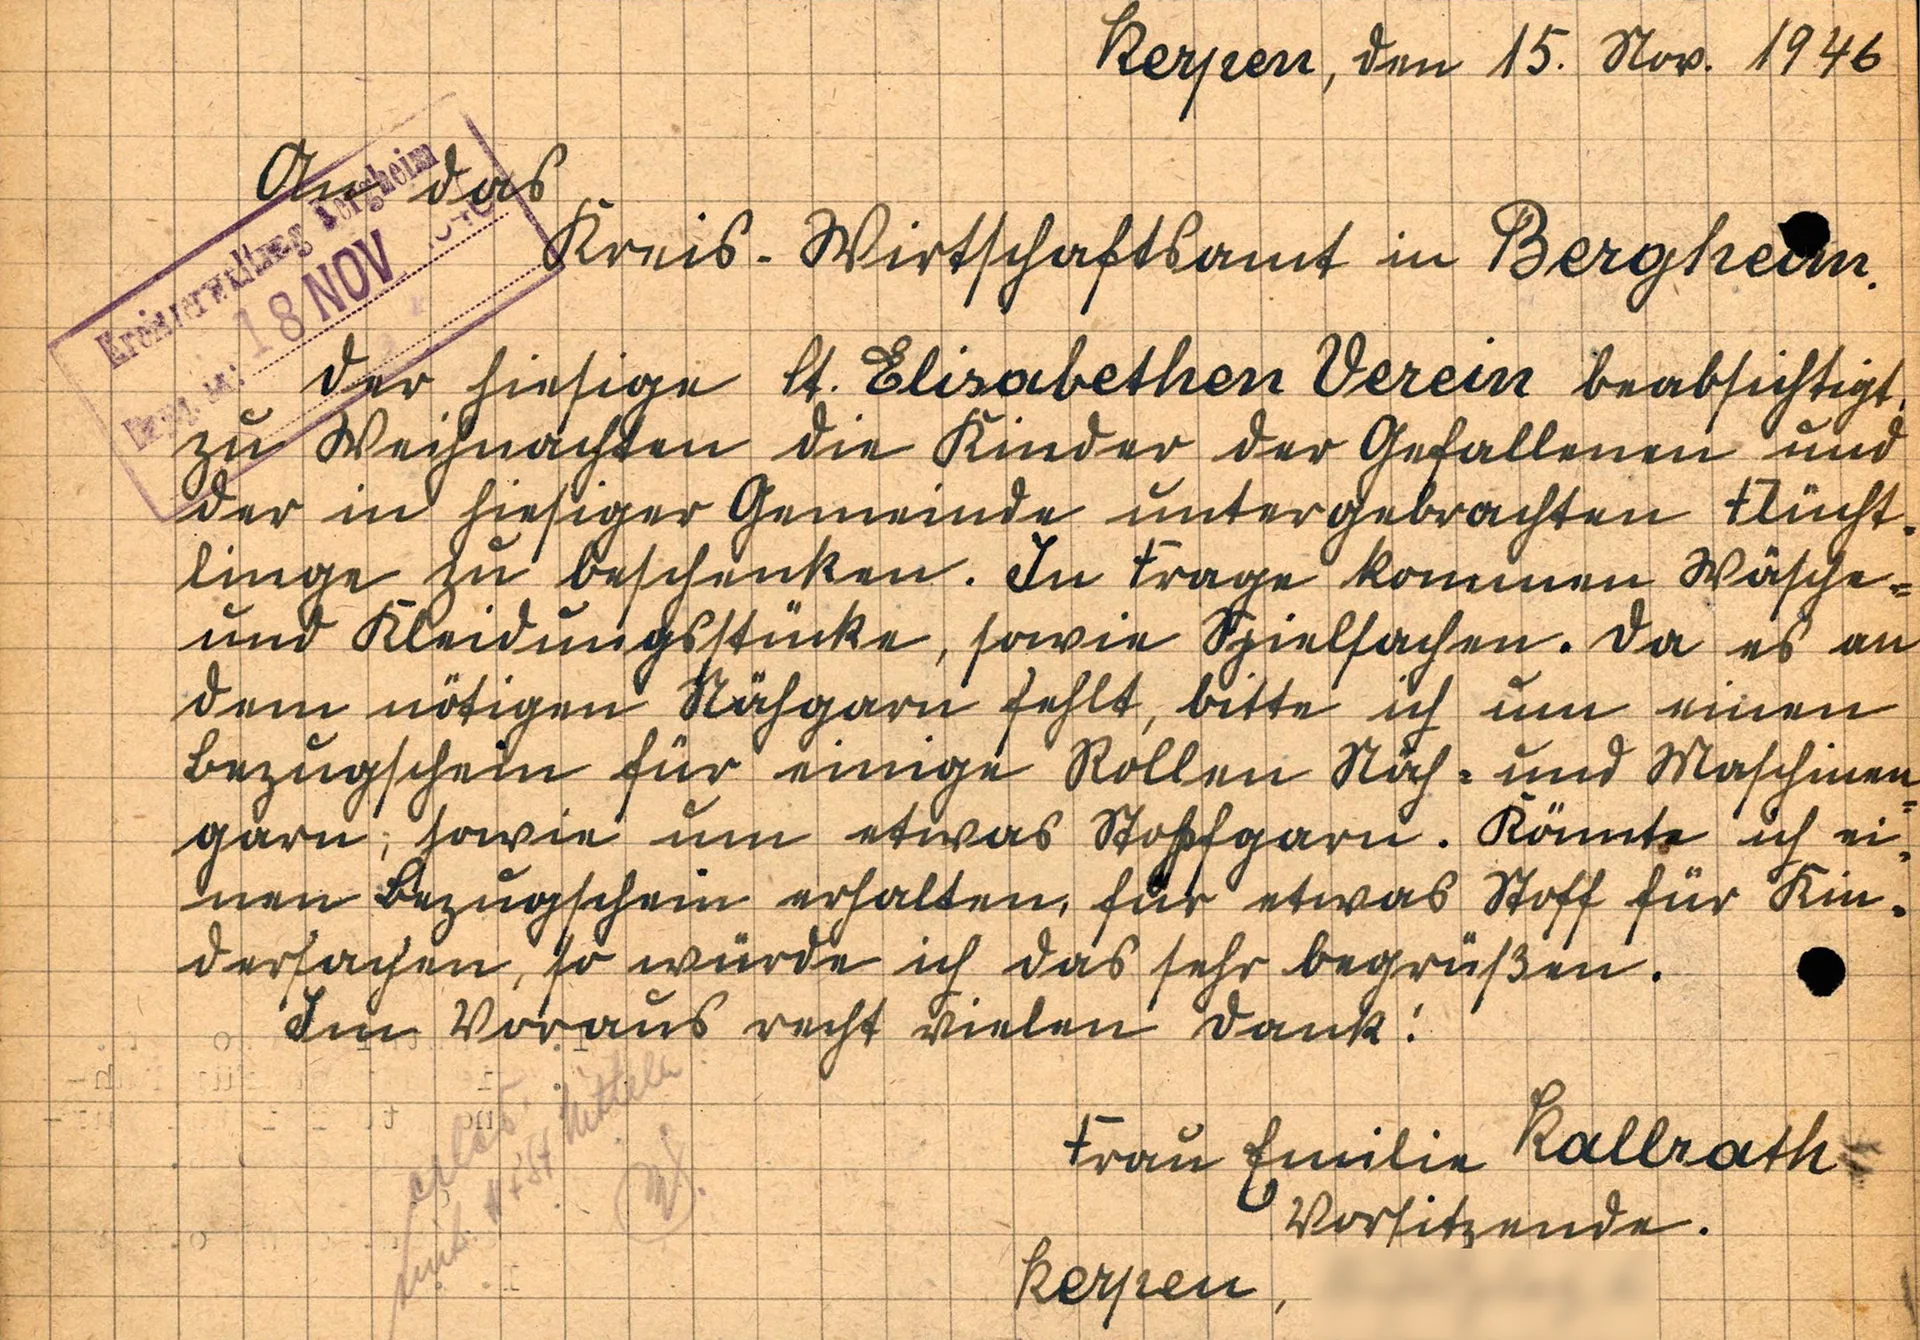 Kerpen, den 15. Nov. 1946
An das
Kreis-Wirtschaftsamt in Bergheim.
Kreisverwaltung Bergheim
18 NOV 1946
Eing. am:
Der hiesige St. Elisabethen Verein beabsichtigt,
zu Weihnachten die Kinder der Gefallenen und
der in hiesiger Gemeinde untergebrachten Flücht-
linge zu beschenken. In Frage kommen Wäsche=
und Kleidungsstücke, sowie Spielsachen. Da es an
dem nötigen Nähgarn fehlt, bitte ich um einen
Bezugschein für einige Rollen Näh= und Maschinen=
garn, sowie um etwas Stopfgarn. Könnte ich ei-
nen Bezugschein erhalten, für etwas Stoff für Kin-
dersachen, so würde ich das sehr begrüßen.
Im Voraus recht vielen Dank!
Frau Emilie Kallrath
Vorsitzende.
Kerpen,